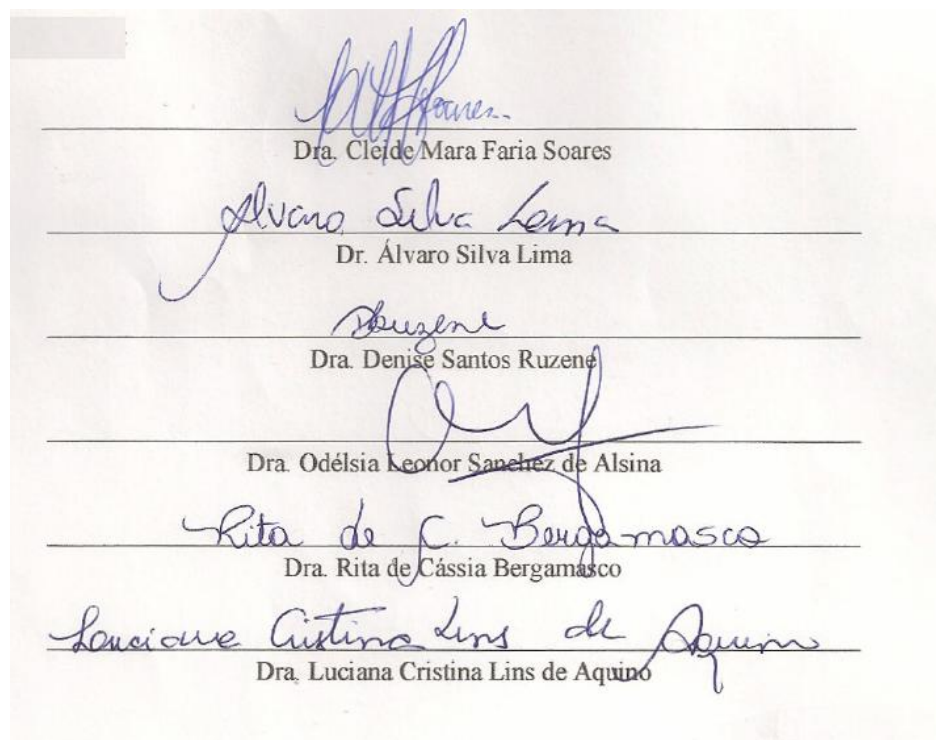 Soares
Dra. Cleide Mara Faria Soares
Alvaro Silva Lima
Dr. Álvaro Silva Lima
DRuzene
Dra. Denise Santos Ruzene
Dra. Odélsia Leonor Sanchez de Alsina
Rita de C. Bergamasco
Dra. Rita de Cássia Bergamasco
Luciana Cristina Lins de Aquino
Dra. Luciana Cristina Lins de Aquino